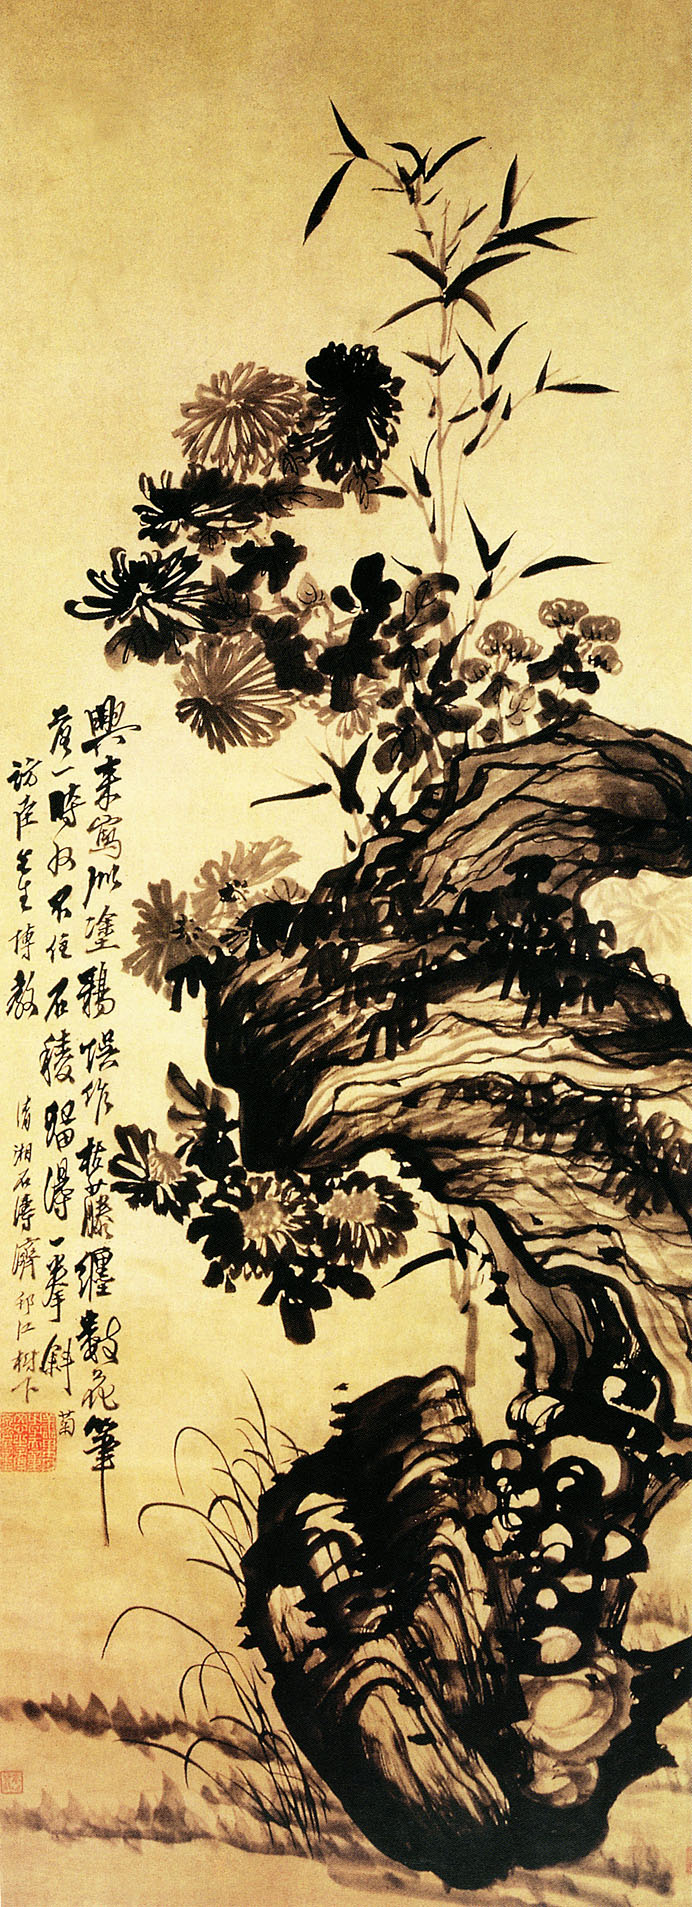 興来寫似塗鴉悞作枯藤纏數花筆
落一時收不住石稜留得一拳斜 菊
清湘石濤濟邗江樹下
訪庵先生博教